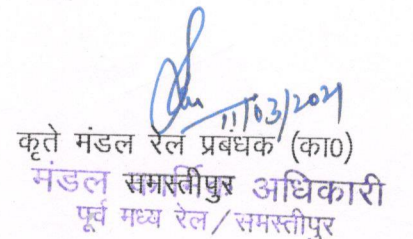 11/03/2021
कृते मंडल रेल प्रबंधक (का0)
मंडल समस्तीपुर अधिकारी
पूर्व मध्य रेल/समस्तीपुर